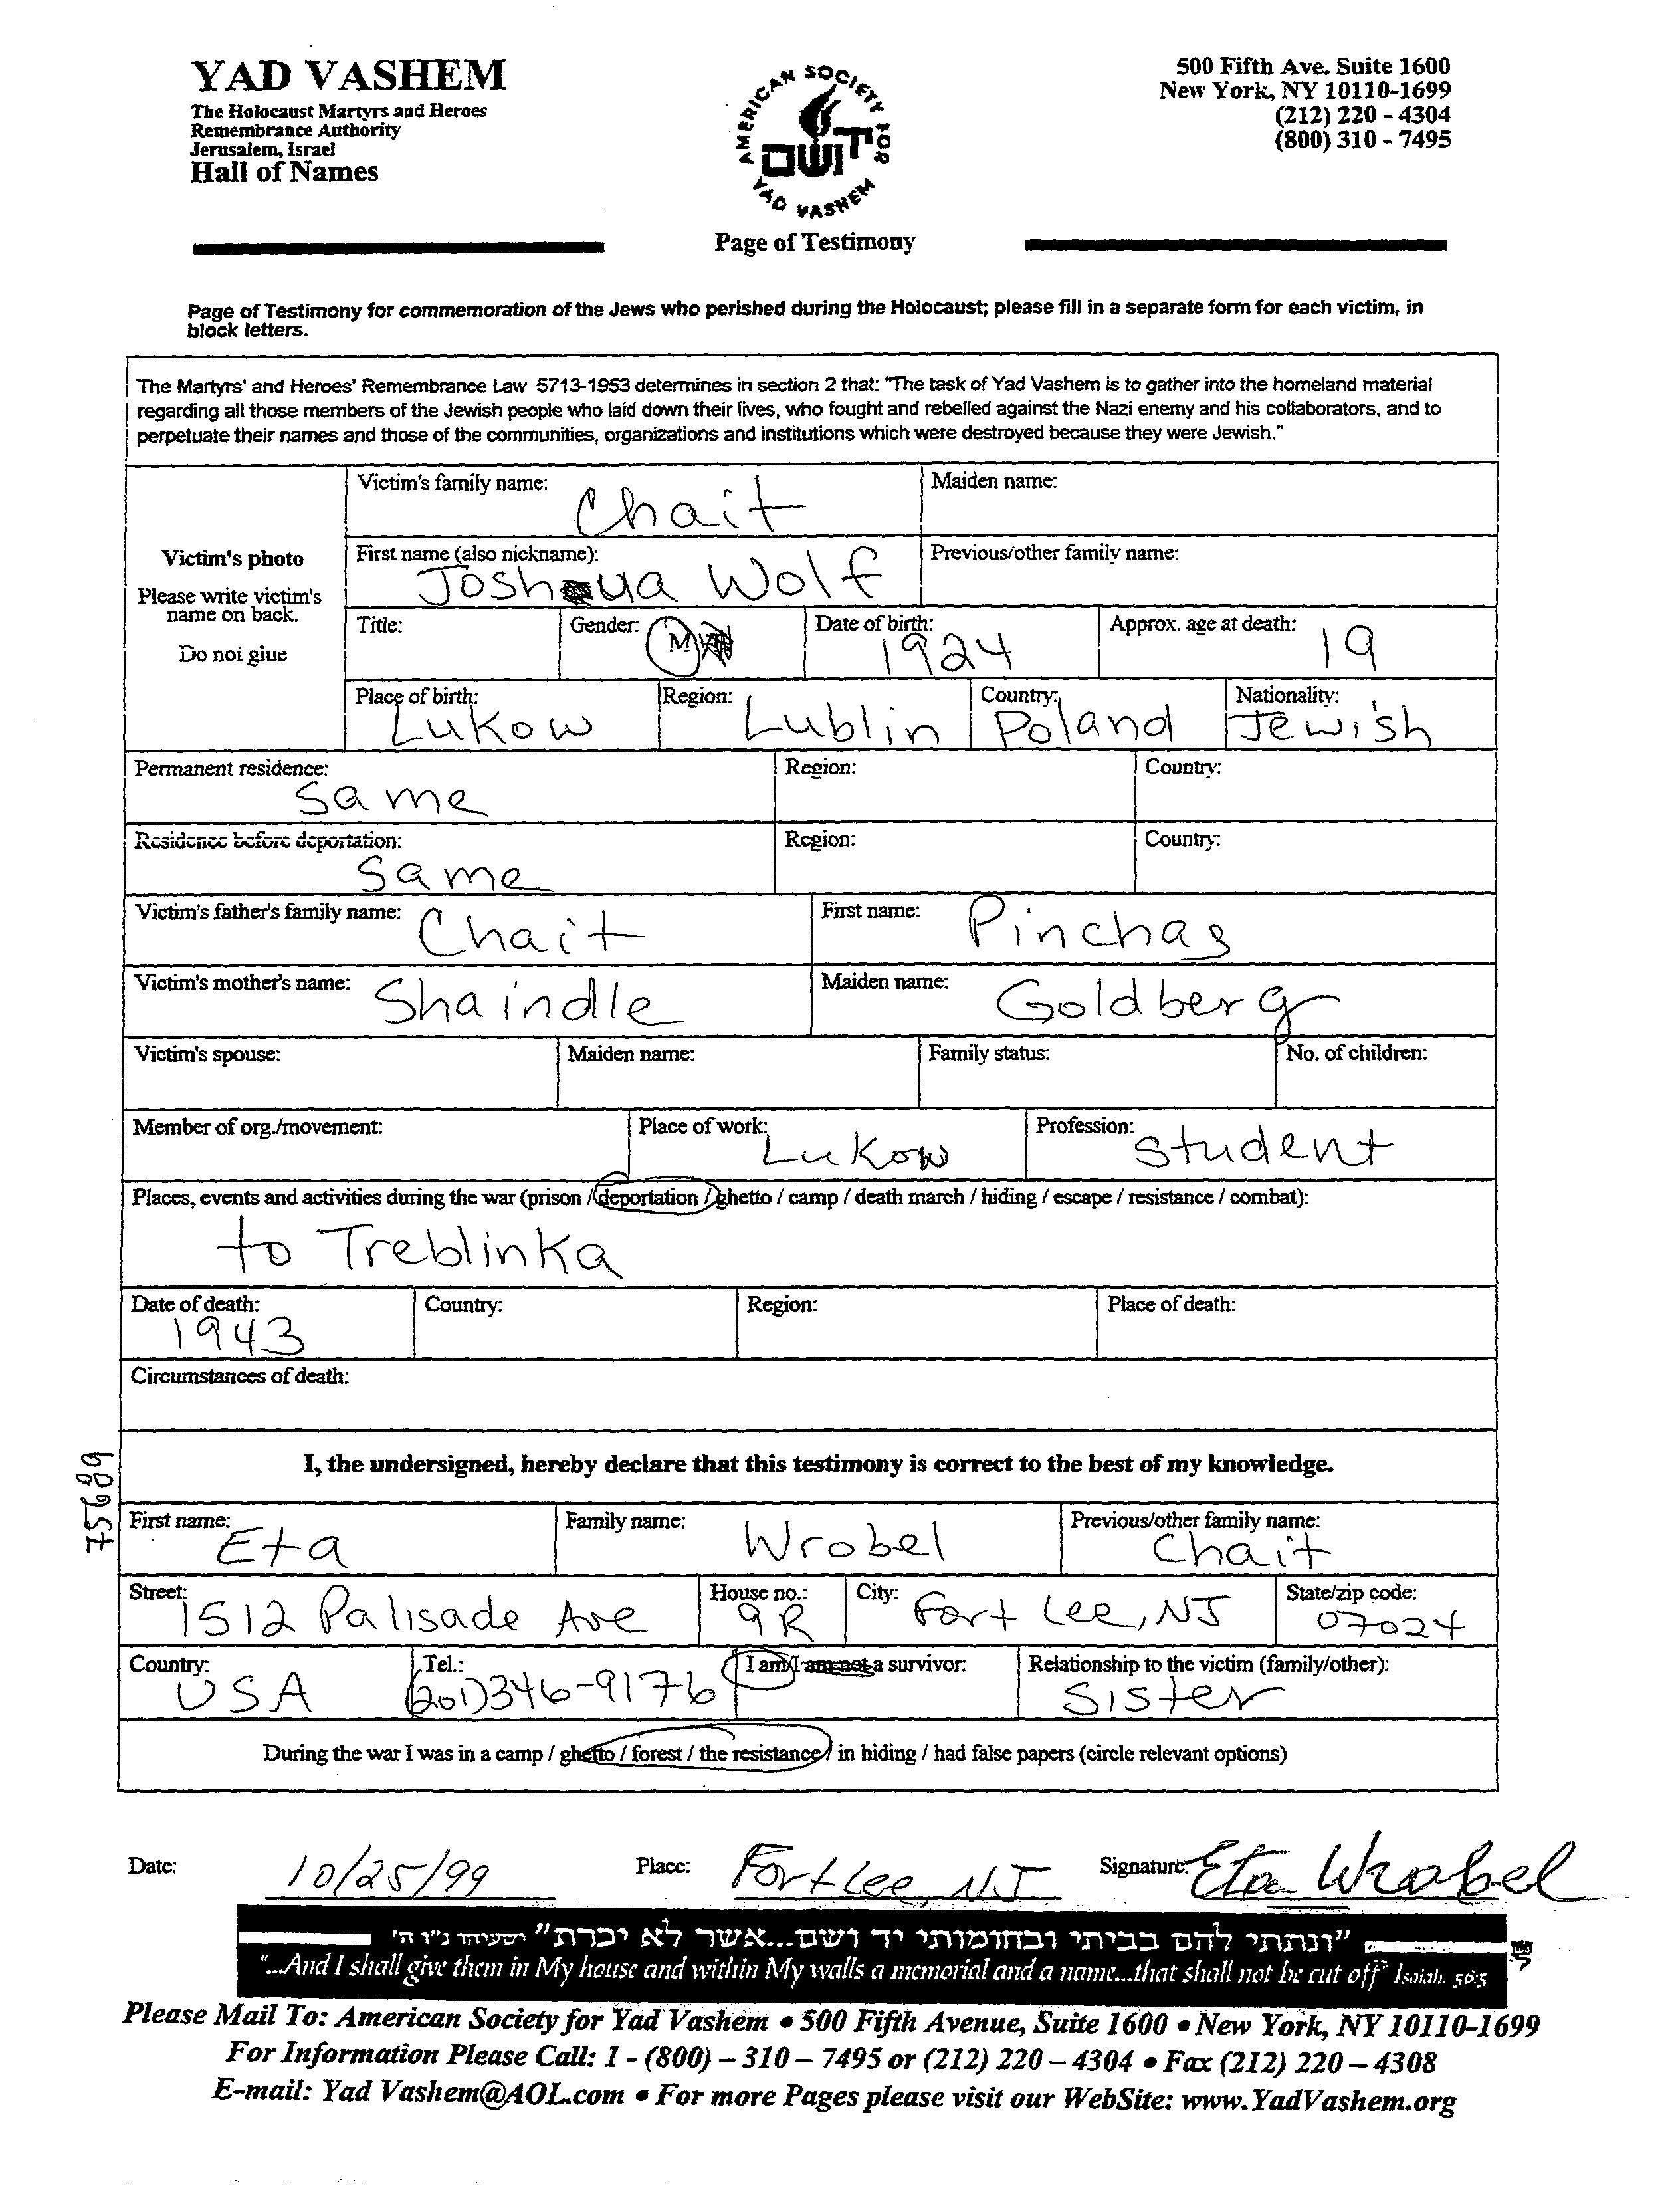 YAD VASHEM
The Holocaust Martyrs and Heroes
Remembrance Authority
Jerusalem, Israel
Hall of Names
AMERICAN SOCIETY FOR YAD VASHEM
יד ושם
Page of Testimony
500 Fifth Ave. Suite 1600
New York, NY 10110-1699
(212) 220 - 4304
(800) 310 - 7495
Page of Testimony for commemoration of the Jews who perished during the Holocaust; please fill in a separate form for each victim, in
block letters.
The Martyrs' and Heroes' Remembrance Law 5713-1953 determines in section 2 that: "The task of Yad Vashem is to gather into the homeland material
regarding all those members of the Jewish people who laid down their lives, who fought and rebelled against the Nazi enemy and his collaborators, and to
perpetuate their names and those of the communities, organizations and institutions which were destroyed because they were Jewish."
Victim's photo
Please write victim's
name on back.
Do not glue
Victim's family name: Chait Maiden name:
First name (also nickname): Joshua Wolf Previous/other family name:
Title: Gender: M Date of birth: 1924 Approx. age at death: 19
Place of birth: Lukow Region: Lublin Country: Poland Nationality: Jewish
Permanent residence: Same Region: Country:
Residence before deportation: Same Region: Country:
Victim's father's family name: Chait First name: Pinchas
Victim's mother's name: Shaindle Maiden name: Goldberg
Victim's spouse: Maiden name: Family status: No. of children:
Member of org./movement: Place of work: Lukow Profession: Student
Places, events and activities during the war (prison / deportation / ghetto / camp / death march / hiding / escape / resistance / combat):
to Treblinka
Date of death: 1943 Country: Region: Place of death:
Circumstances of death:
75689
I, the undersigned, hereby declare that this testimony is correct to the best of my knowledge.
First name: Eta Family name: Wrobel Previous/other family name: Chait
Street: 1512 Palisade Ave House no.: 9R City: Fort Lee, NJ State/zip code: 07024
Country: USA Tel.: (201)346-9176 I am/I am not a survivor: Relationship to the victim (family/other): Sister
During the war I was in a camp / ghetto / forest / the resistance / in hiding / had false papers (circle relevant options)
Date: 10/25/99 Place: Fort Lee, NJ Signature: Eta Wrobel
"ונתתי להם בביתי ובחומותי יד ושם...אשר לא יכרת" ישעיהו נ"ו ה'
"...And I shall give them in My house and within My walls a memorial and a name...that shall not be cut off" Isaiah. 56:5
Please Mail To: American Society for Yad Vashem • 500 Fifth Avenue, Suite 1600 • New York, NY 10110-1699
For Information Please Call: 1 - (800) – 310 – 7495 or (212) 220 – 4304 • Fax (212) 220 – 4308
E-mail: Yad Vashem@AOL.com • For more Pages please visit our WebSite: www.YadVashem.org